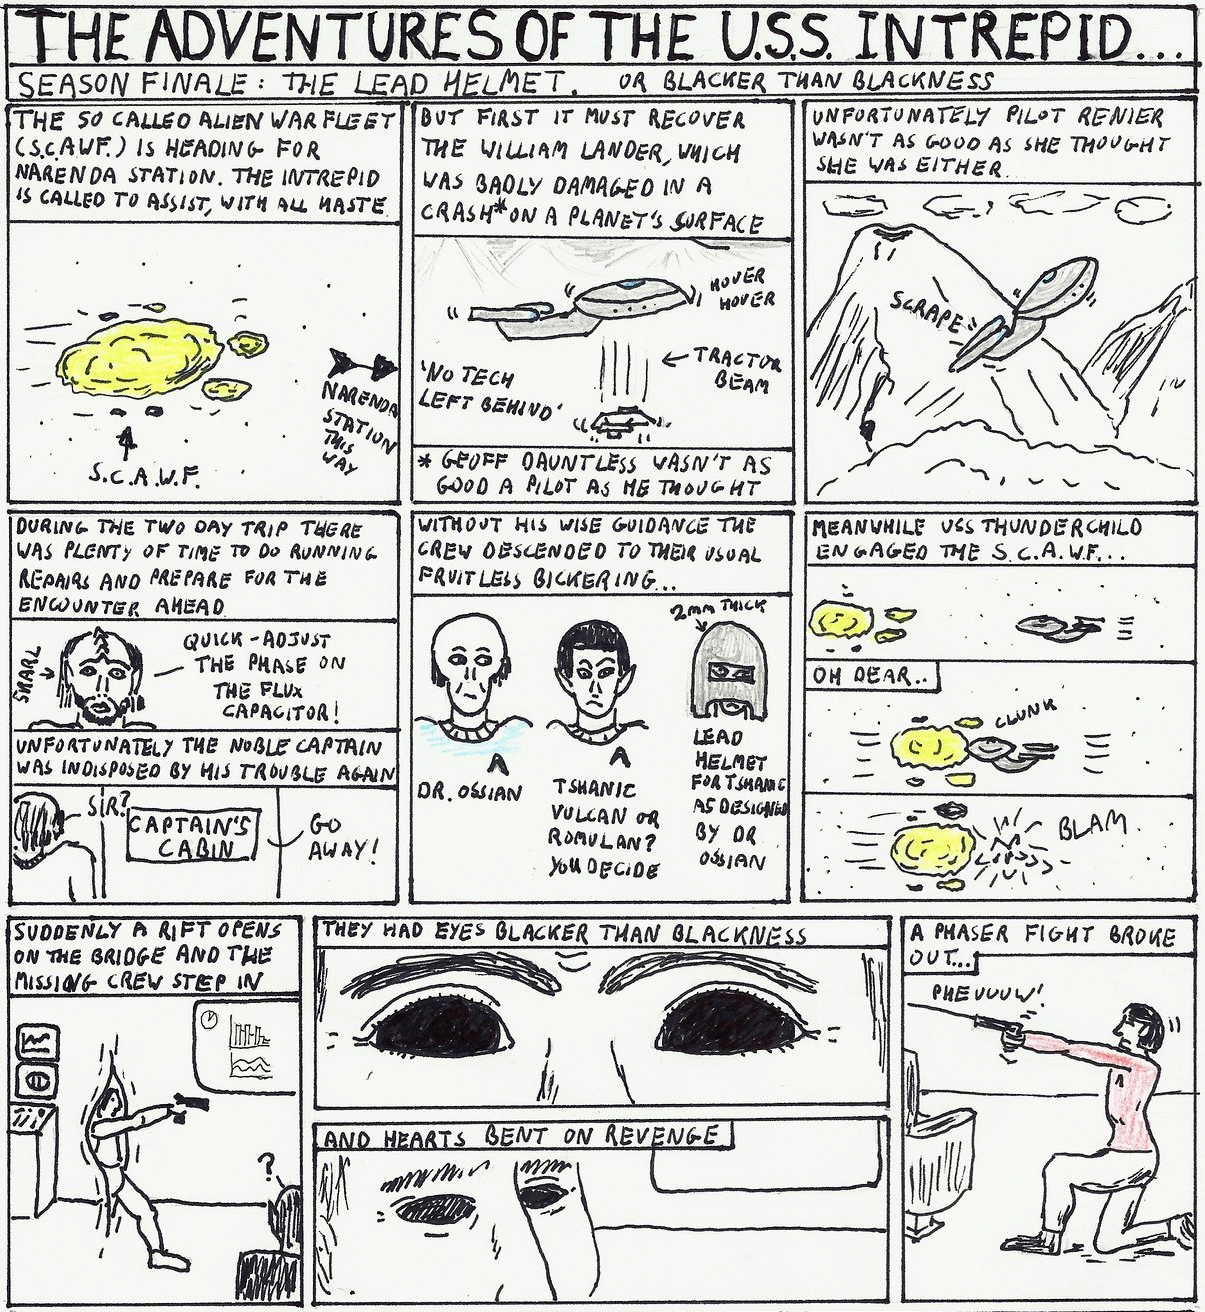 THE ADVENTURES OF THE U.S.S. INTREPID...
SEASON FINALE: THE LEAD HELMET. OR BLACKER THAN BLACKNESS
THE SO CALLED ALIEN WAR FLEET
(S.C.A.W.F.) IS HEADING FOR
NARENDA STATION. THE INTREPID
IS CALLED TO ASSIST, WITH ALL HASTE
NARENDA
STATION
THIS
WAY
S.C.A.W.F.
BUT FIRST IT MUST RECOVER
THE WILLIAM LANDER, WHICH
WAS BADLY DAMAGED IN A
CRASH* ON A PLANET'S SURFACE
HOVER
HOVER
TRACTOR
BEAM
'NO TECH
LEFT BEHIND'
* GEOFF DAUNTLESS WASN'T AS
GOOD A PILOT AS HE THOUGHT
UNFORTUNATELY PILOT RENIER
WASN'T AS GOOD AS SHE THOUGHT
SHE WAS EITHER.
SCRAPE
DURING THE TWO DAY TRIP THERE
WAS PLENTY OF TIME TO DO RUNNING
REPAIRS AND PREPARE FOR THE
ENCOUNTER AHEAD
SNARL
QUICK-ADJUST
THE PHASE ON
THE FLUX
CAPACITOR!
UNFORTUNATELY THE NOBLE CAPTAIN
WAS INDISPOSED BY HIS TROUBLE AGAIN
SIR?
CAPTAIN'S
CABIN
GO
AWAY!
WITHOUT HIS WISE GUIDANCE THE
CREW DESCENDED TO THEIR USUAL
FRUITLESS BICKERING...
2MM THICK
DR. OSSIAN
TSHANIC
VULCAN OR
ROMULAN?
YOU DECIDE
LEAD
HELMET
FOR TSHANIC
AS DESIGNED
BY DR
OSSIAN
MEANWHILE USS THUNDERCHILD
ENGAGED THE S.C.A.W.F...
OH DEAR..
CLUNK
BLAM.
SUDDENLY A RIFT OPENS
ON THE BRIDGE AND THE
MISSING CREW STEP IN
?
THEY HAD EYES BLACKER THAN BLACKNESS
AND HEARTS BENT ON REVENGE
A PHASER FIGHT BROKE
OUT...
PHEUUUW!